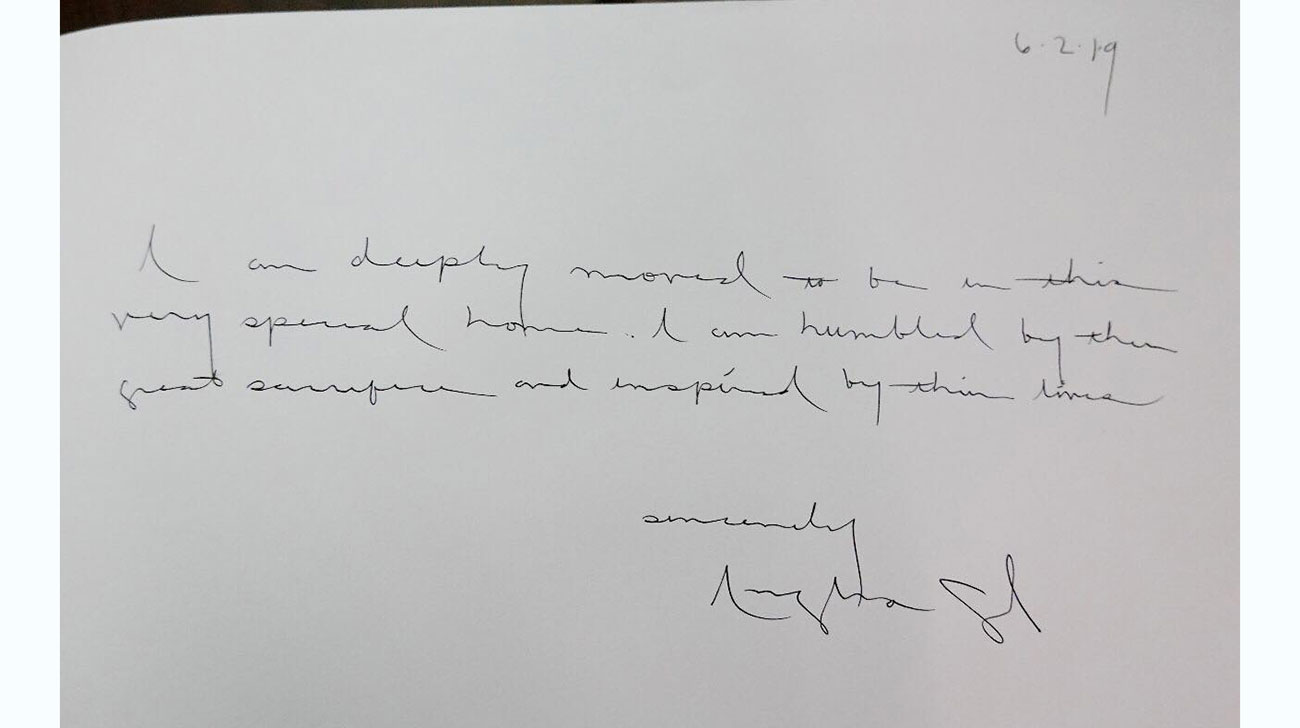 6.2.19
I am deeply moved to be in this
very special home. I am humbled by their
great sacrifice and inspired by their lives
sincerely